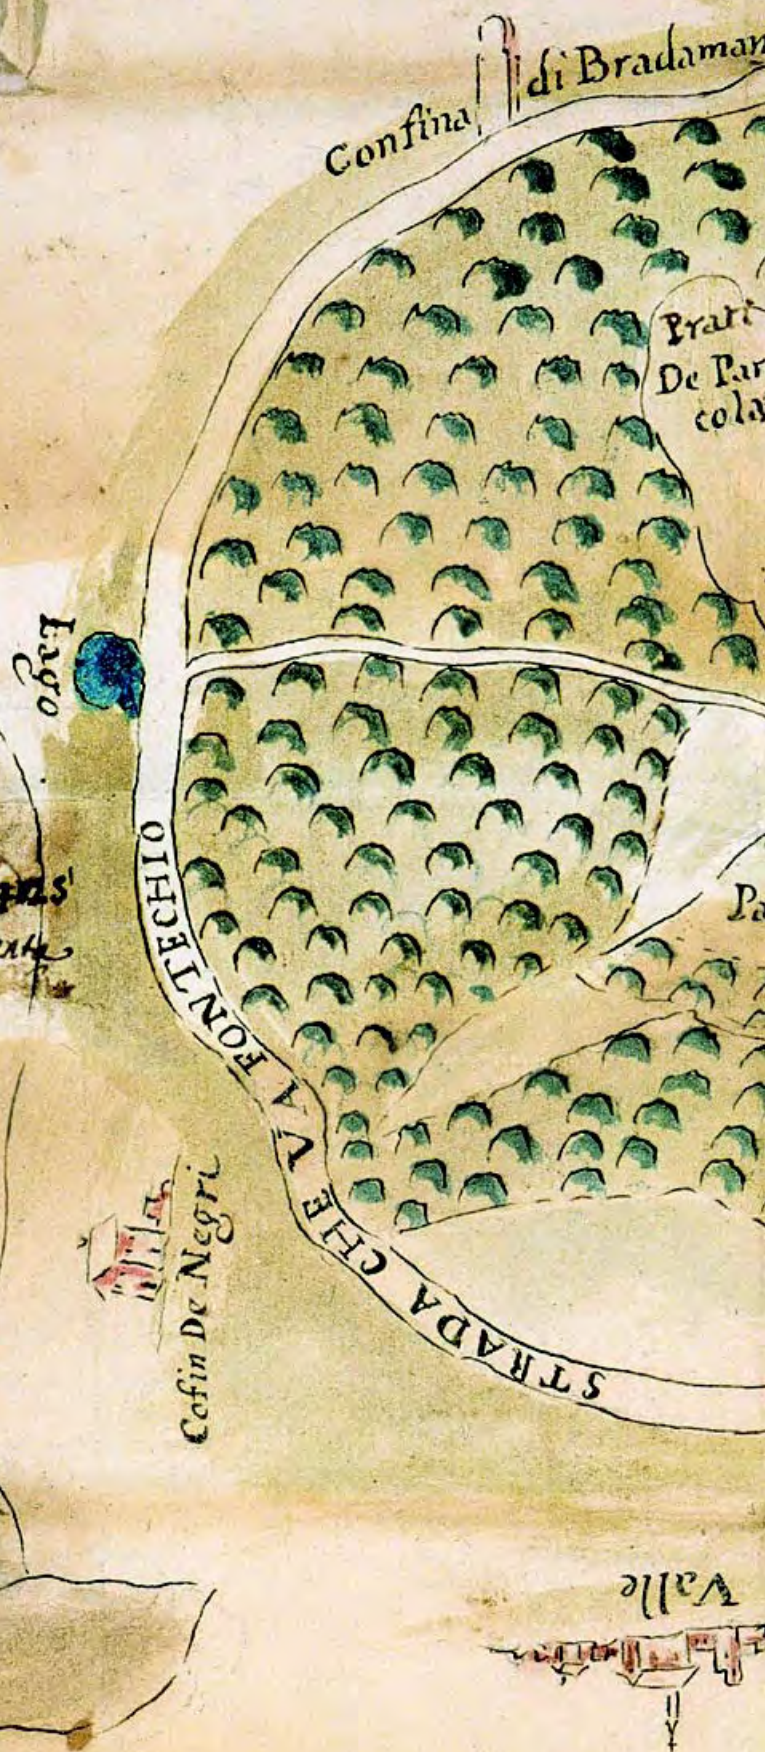 Confina di Bradaman
Prati
De Par
cola
Lago
STRADA CHE VA FONTECHIO
Pa
Cofin De Negri
Valle